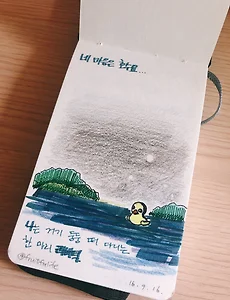 네 마음은 호수요...
나는 거기 둥둥 떠 다니는
한 마리
16. 9. 16.